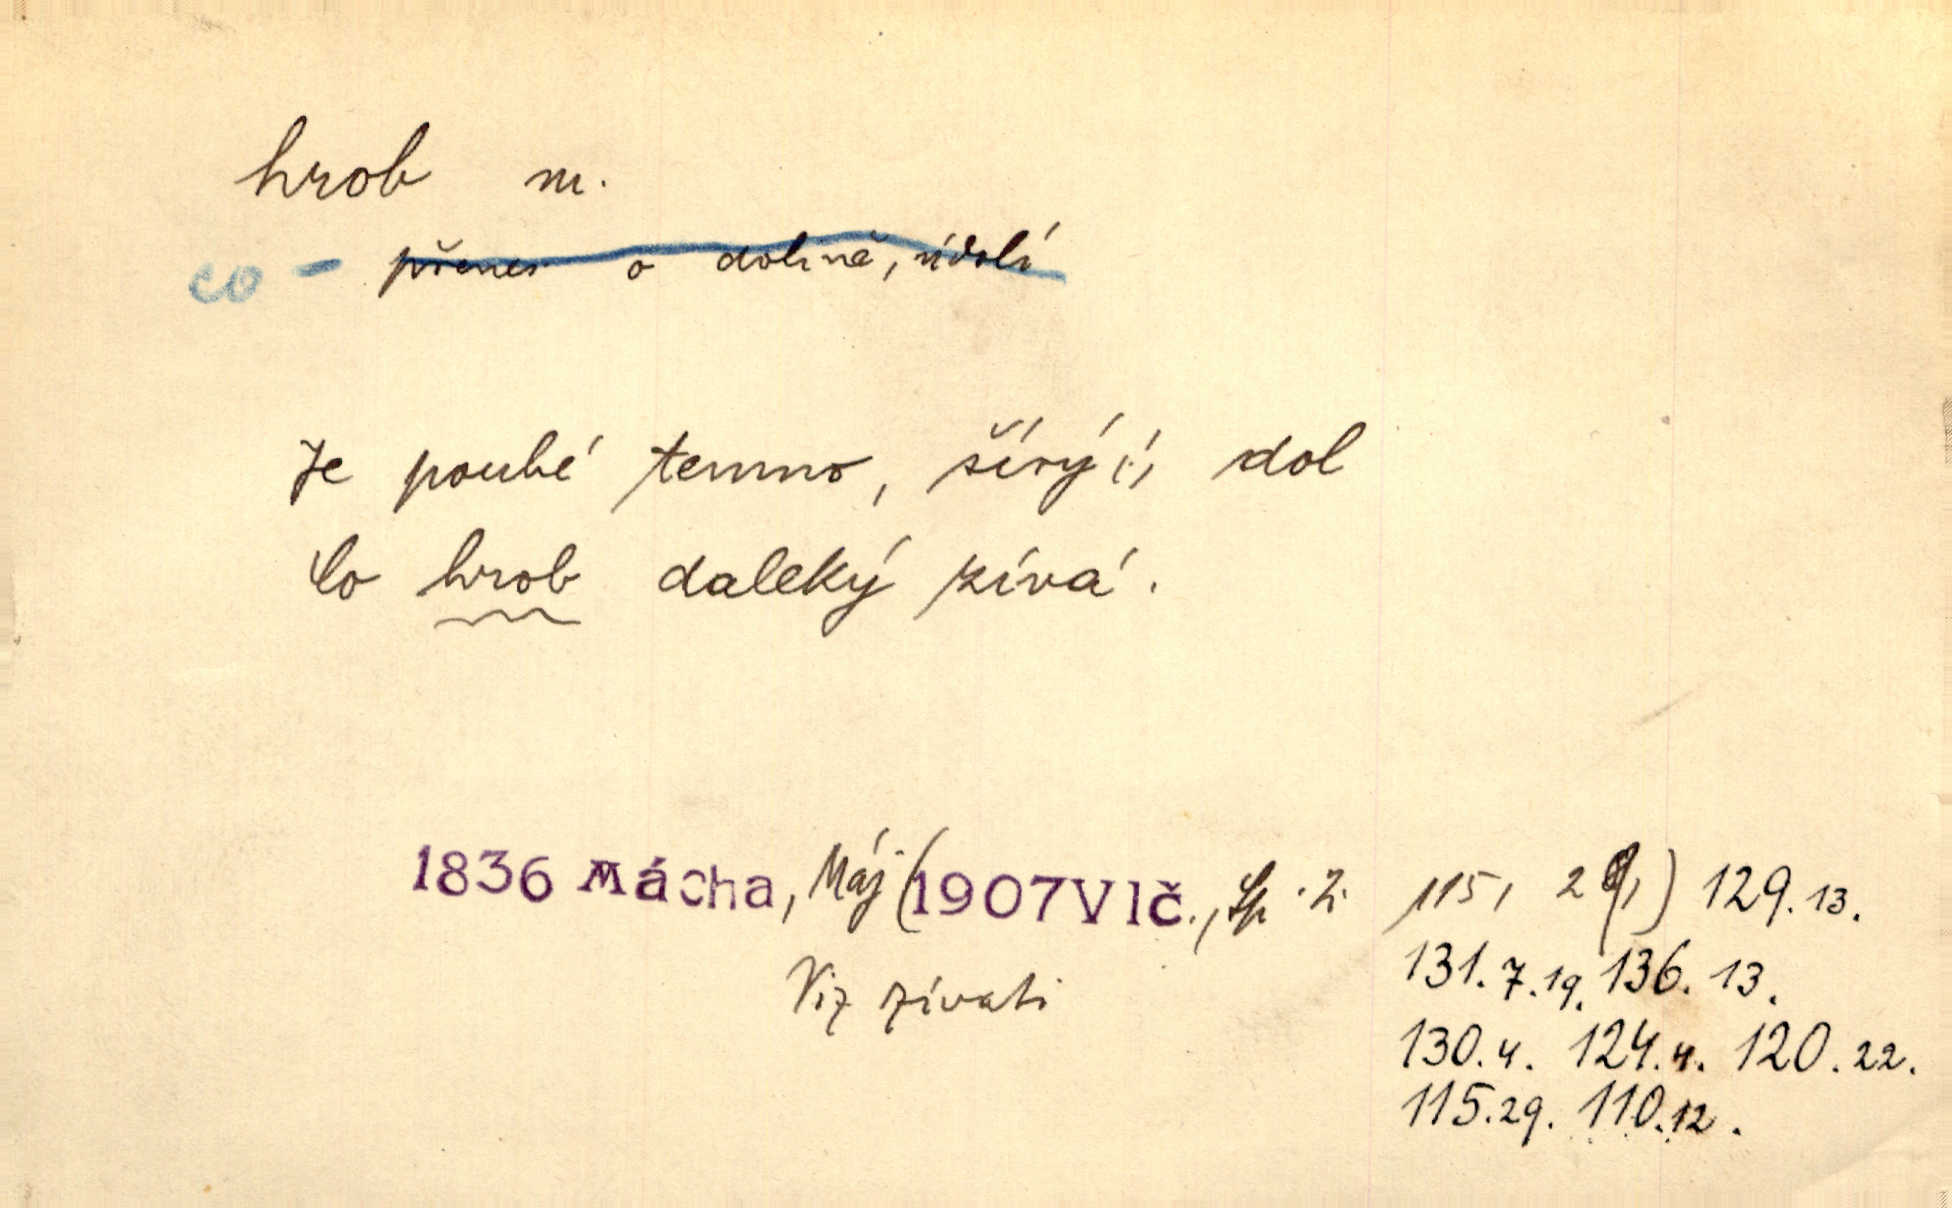 hrob m.
co – přenes. o dolině, údolí
Je pouhé temno, šírý dol
Co hrob daleký zívá.
1836 Mácha, Máj (1907 Vlč., Sp. I. 115, 29) 129.13.
Viz zívati 131.7.19. 136.13.
130.4. 124.4. 120.22.
115.29. 110.12.